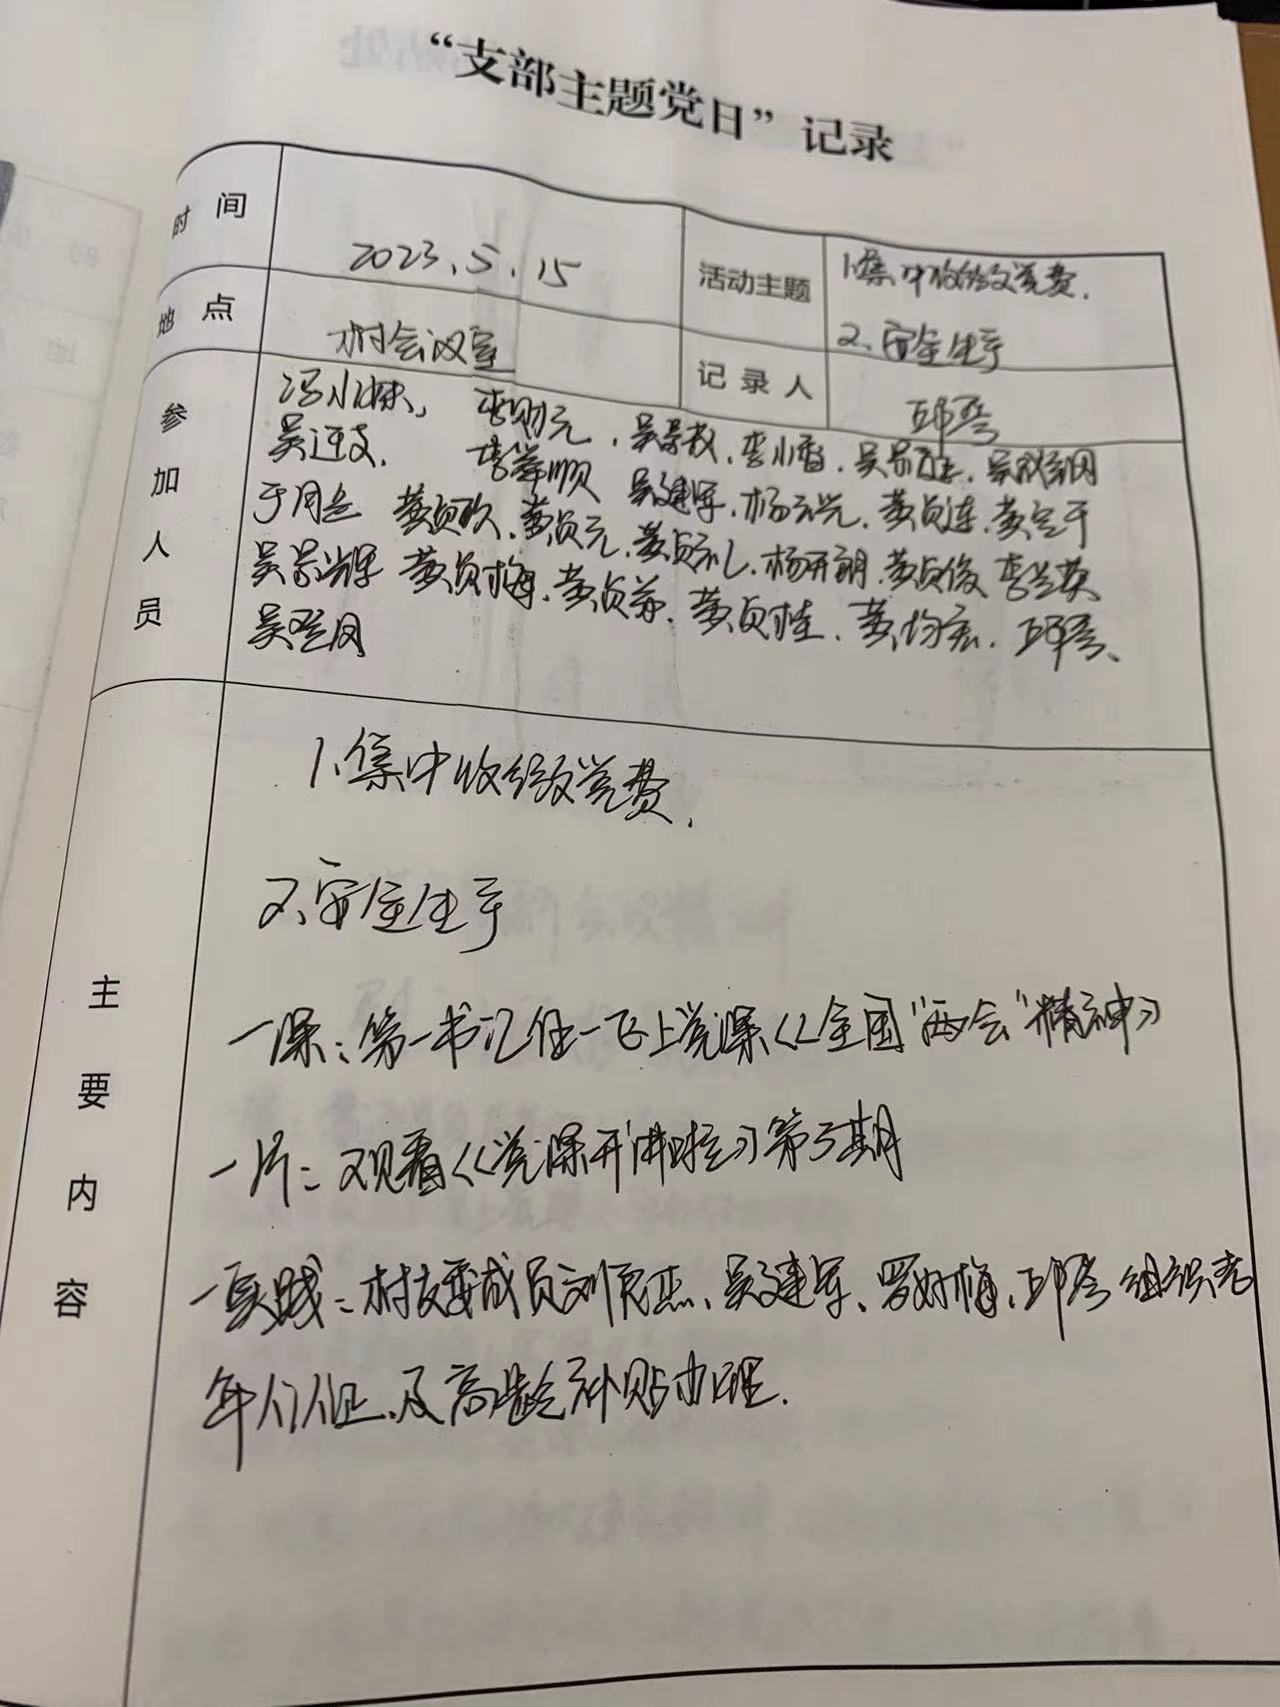 “支部主题党日”记录
时间 2023.5.15 活动主题 1.集中收缴党费.
2.安全生产
地点 村会议室 记录人 邱琴
参加人员
冯小妹、李财元、吴景权、李小香、吴
吴连支、李举顺 吴建军、杨云光、黄贞连、黄金干
于月兰 黄贞欧、黄贞元、黄贞礼、杨开朗、黄贞俊 李兰英
吴景辉 黄贞梅、黄贞荣、黄贞桂、黄均宏、邱琴、
吴登凤
主要内容
1、集中收缴党费.
2、安全生产
一课:第一书记任一飞上党课《全国“两会”精神》
一片:观看《党课开讲啦》第3期
一实践:村支委成员刘贞杰、吴建军、罗好梅、邱琴组织老
年人认证、及高龄补贴办理.